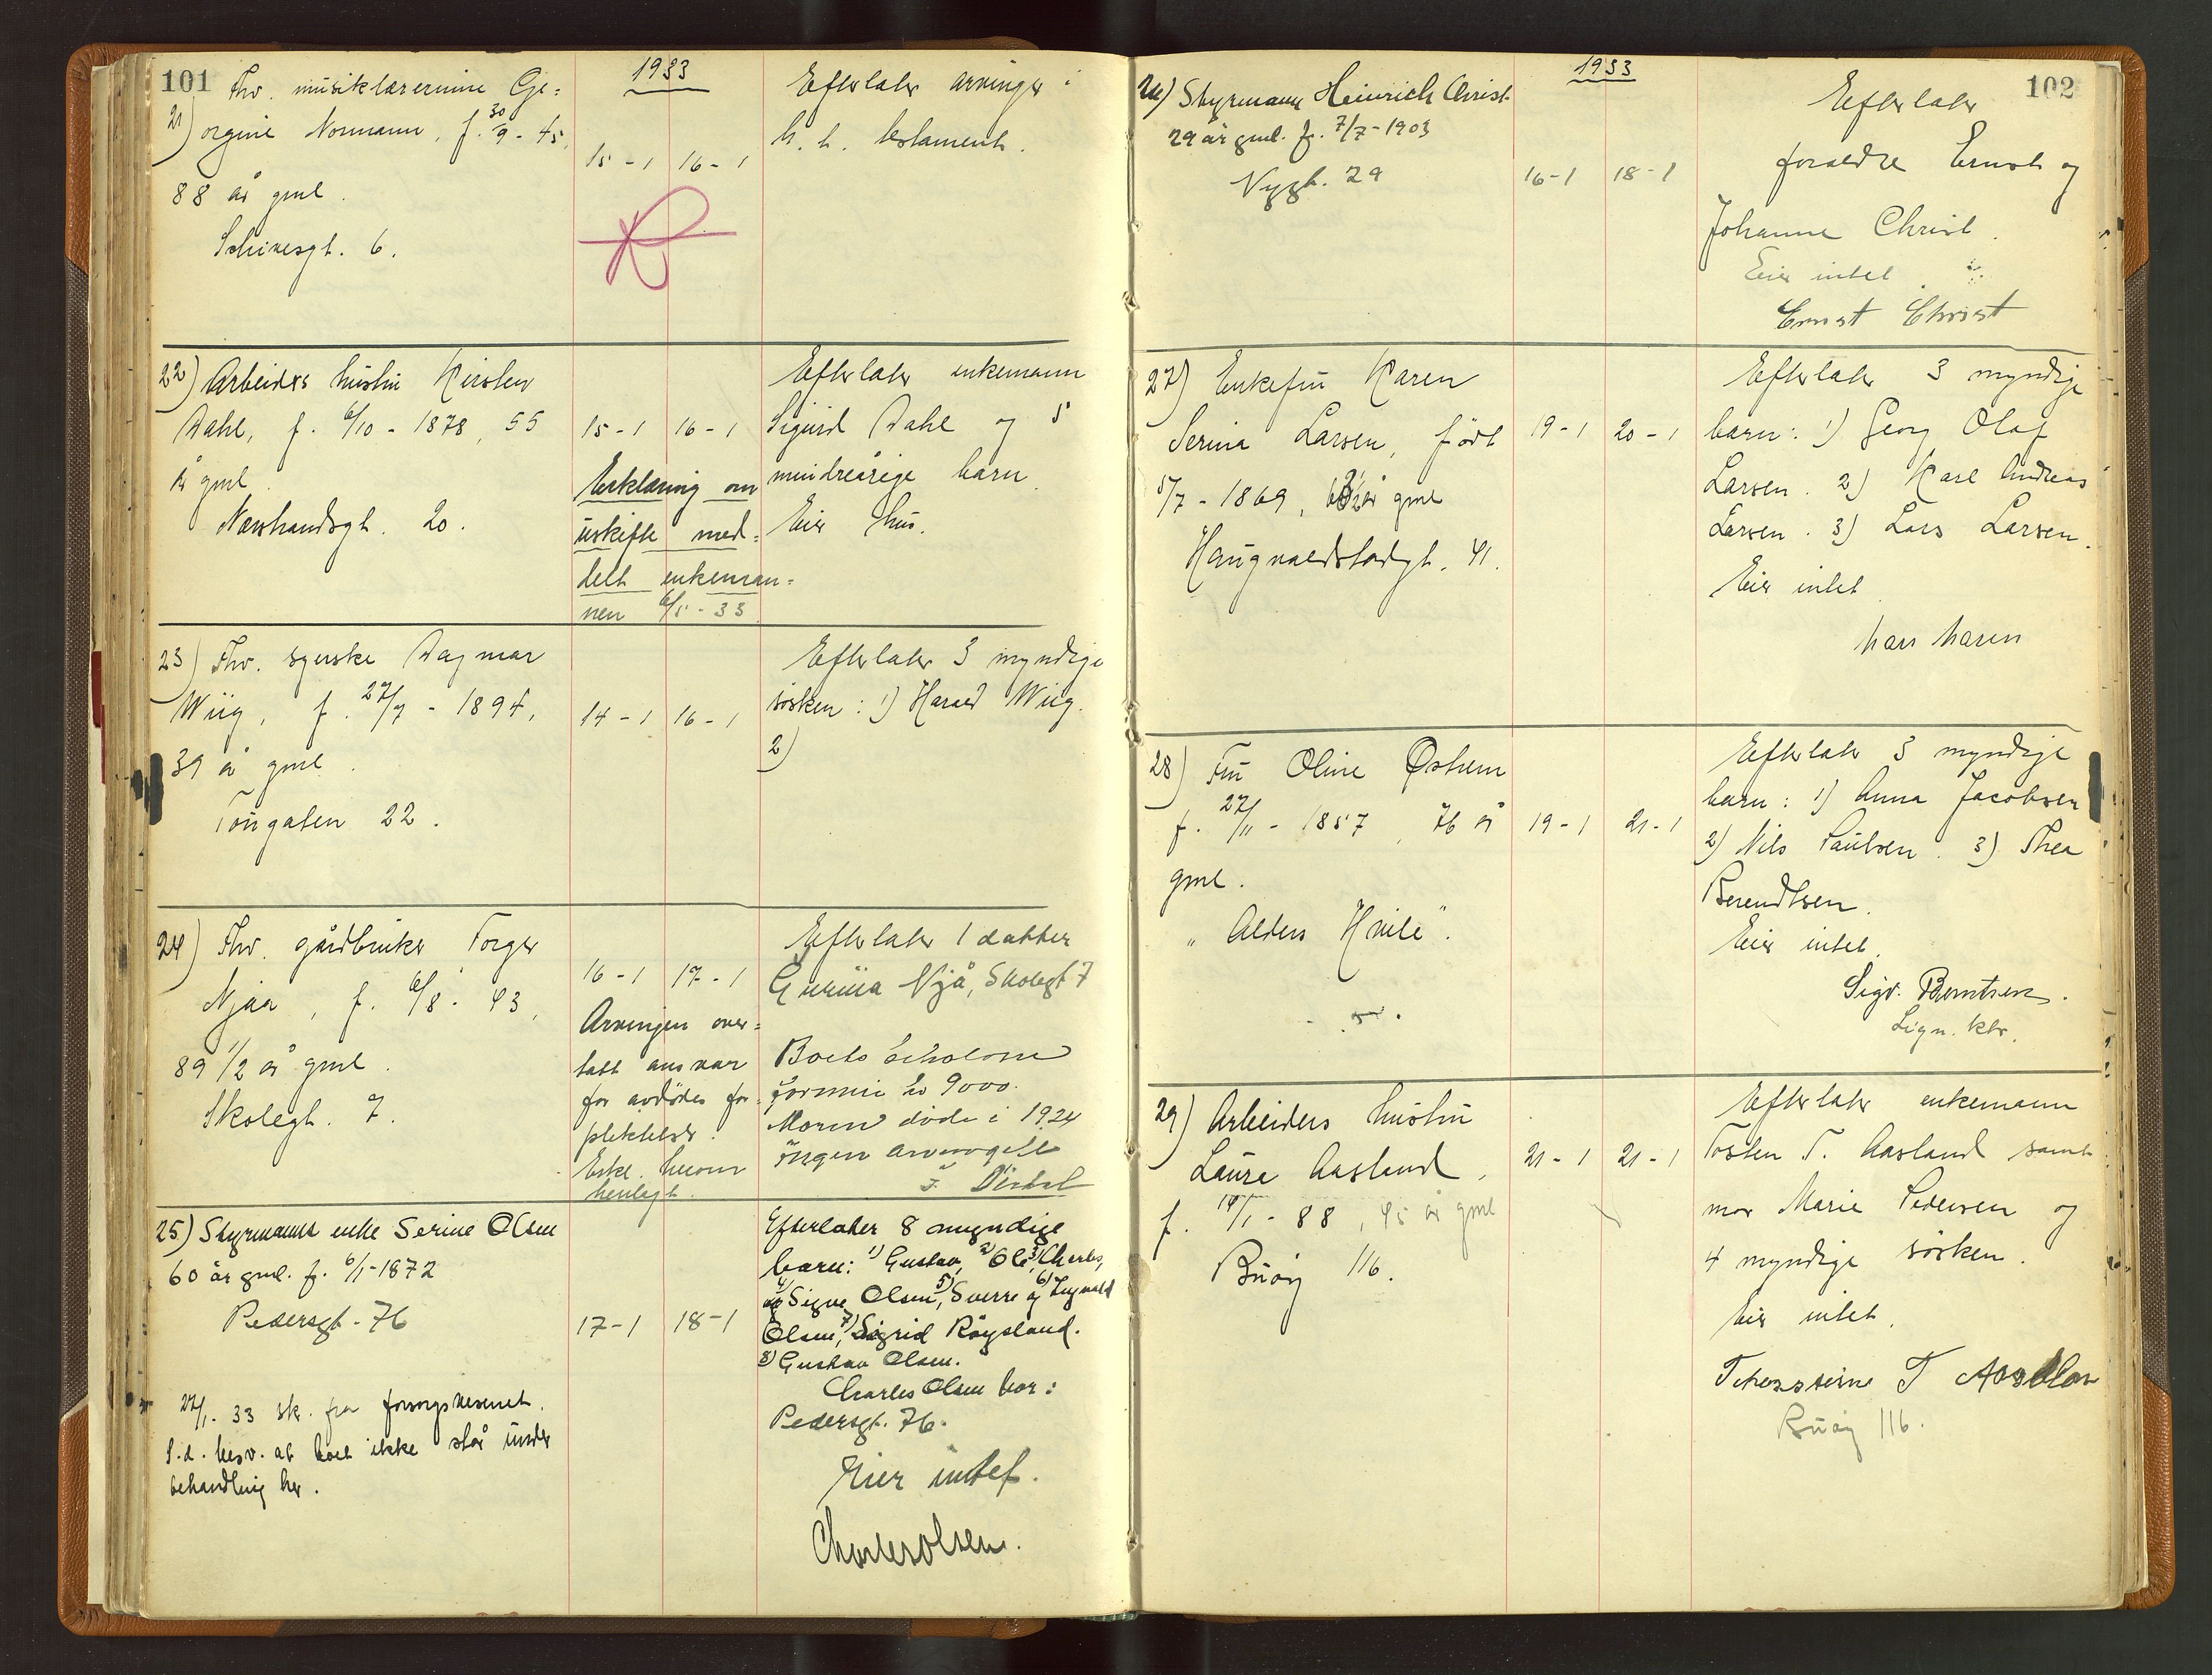 101
1933
21) Fhv. musiklærerinne Ge=
orgine Normann, f. 30/9 - 45,
88 år gml.
Schivesgt. 6.
15-1 16-1
Efterlater arvinger i
h. t. testament.
22) Arbeiders hustru Kirsten
Dahl, f. 6/10 - 1878, 55
år gml.
Normannsgt. 20.
15-1 16-1
Erklæring om
uskifte med=
delt enkeman=
nen 6/5 - 33
Efterlater enkemann
Sigurd Dahl og 5
mindreårige barn.
Eier hus.
23) Fhv. syerske Dagmar
Wiig, f. 27/7 - 1894,
39 år gml.
Tougaten 22.
14-1 16-1
Efterlater 3 myndige
søsken: 1) Harald Wiig.
2)
24) Fhv. gårdbruker Torger
Njaa, f. 6/8 - 43,
89 1/2 år gml.
Skolegt. 7.
16-1 17-1
Arvingen over=
tatt ansvar
for avdødes for=
pliktelser.
Erkl. herom
henlagt.
Efterlater 1 datter
Gurina Njå, Skolegt 7
Boets beholdne
formue kr 9000.
Moren døde i 1924
ingen arveavgift
25.) Styrmanns enke Serine Olsen
60 år gml. f. 6/1-1872
Pedersgt. 76
17-1 18-1
27/1. 33 sk. fra forsorgsvesenet.
S.d. besv. at boet ikke står under
behandling her.
Efterlater 8 myndige
barn: 1) Gustav, 2) Ole, 3) Charles,
4) Signe Olsen, 5) Sverre og 6) Ingvald
Olsen, 7) Sigrid Røysland.
8) Gustav Olsen.
Charles Olsen bor:
Pedersgt. 76.
Eier intet.
Charles Olsen.
102
1933
26) Styrmann Heinrich Christ
29 år gml. f. 7/7-1903
Nygt. 29
16-1 18-1
Efterlater
foreldre Ernst og
Johanne Christ.
Eier intet.
Ernst Christ
27) Enkefru Karen
Serina Larsen, født
5/7 - 1869, år gml
Haugvaldstadgt. 41.
19-1 20-1
Efterlater 3 myndige
barn: 1) Georg Olaf
Larsen. 2) Karl Andreas
Larsen. 3) Lars Larsen.
Eier intet
28) Fru Oline Østrem
f. 27/11 - 1857, 76 år
gml.
"Alders Hvile".
19-1 21-1
Efterlater 3 myndige
barn: 1) Anna Jacobsen
2) Nils Paulsen. 3) Thea
Berendtsen.
Eier intet.
Sigv. Berntsen.
Lign. ktr.
29) Arbeiders hustru
Laura Aasland,
f. 14/1 - 88, 45 år gml
Buøy 116.
21-1 21-1
Efterlater enkemann
Tosten T. Aasland samt
mor Marie Pedersen og
4 myndige søsken.
Eier intet.
Buøy 116.